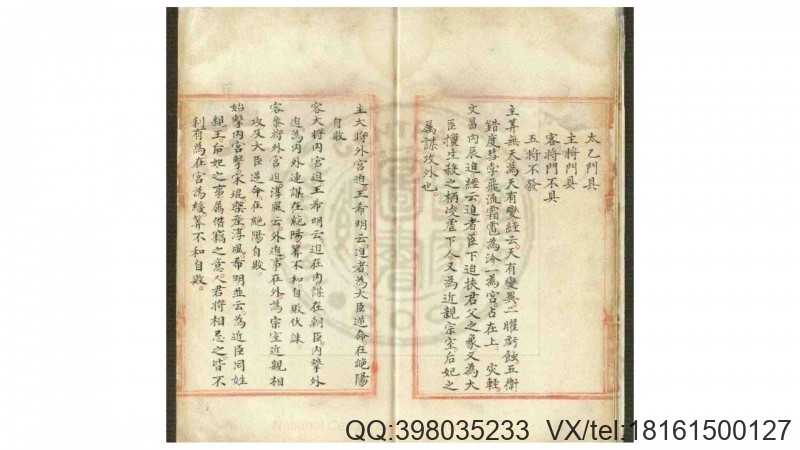 太乙門具
主將門具
客將門不具
五將不發
主算無天為天有變經云天有變異二曜虧蝕五衛
錯度彗孛飛流霜雹為沴一為宮占在上災輕
文昌內辰迫經云迫者臣下迫挾君父之象又為大
臣擅生殺之柄凌虐下人又為近親宗室后妃之
屬謀攻外也
主大將外宮迫王希明云迫者為大臣逆命在絕陽
自敗
客大將內宮迫王希明云迫在內謀在朝臣內擊外
迫為內外連謀在絕陽算不和自敗伏誅
客參將外宮迫淳風云外迫事在外為宗室近親相
攻及大臣逆命在絕陽自敗
始擊內宮擊宋琨樂產淳風希明並云為近臣同姓
親王后妃之事屬僭竊之意人君將相忌之皆不
利有為在宮為緩算不和自敗
QQ:398035233 VX/tel:18161500127